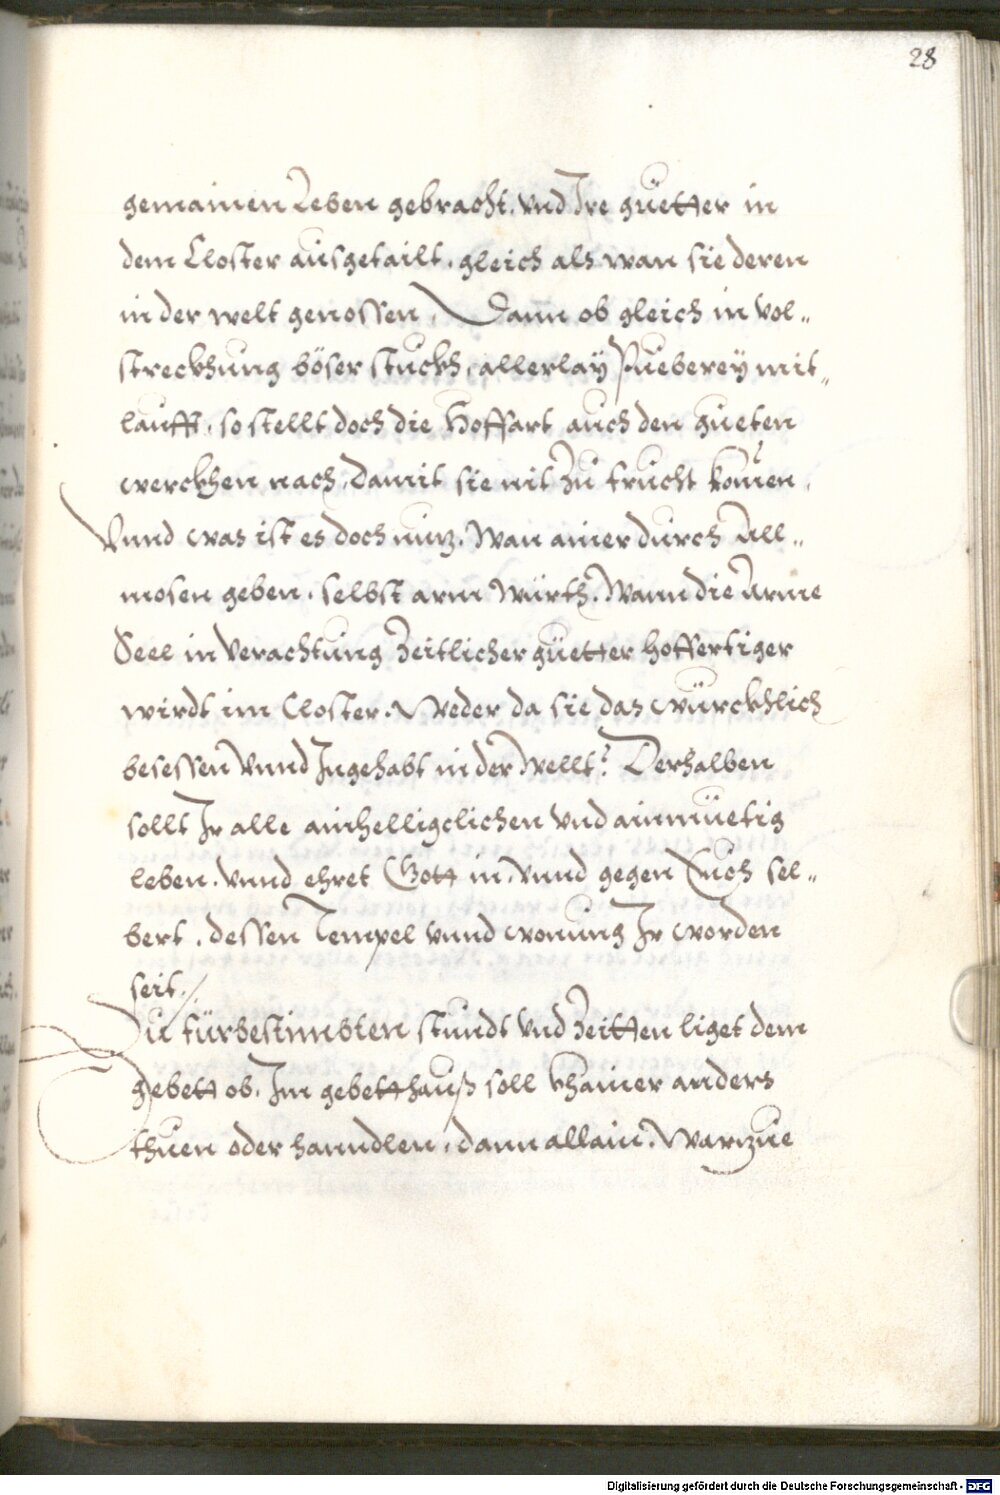 28
gemainen Leben gebracht. vnd Ire güetter in
dem Closter ausgetailt, gleich als wan sie deren
in der welt genossen, Dann ob gleich in vol-
streckhung böser stuckh, allerlay Pueberey mit-
laufft, so stellt doch die Hoffart auch den gueten
werckhen nach, damit sie nit zu frucht komen.
Vnnd was ist es doch nutz. Wan ainer durch All-
mosen geben, selbst arm würth, Wann die Arme
Seel in verachtung zeitlicher güetter hoffertiger
wirdt im Closter. Weder da sie das würckhlich
besessen vnnd Ingehabt in der Wellt? Derhalben
sollt Ir alle ainhelligclichen vnd ainmüetig
leben. vnnd ehret Gott in, vnnd gegen Euch sel-
bert, dessen Tempel vnnd wonung Ir worden
seit.
Zu fürbestimbten stundt vnd Zeitten liget dem
gebett ob. Im gebetthauß soll khainer anders
thuen oder hanndlen, dann allain. Warzue
Digitalisierung gefördert durch die Deutsche Forschungsgemeinschaft - DFG